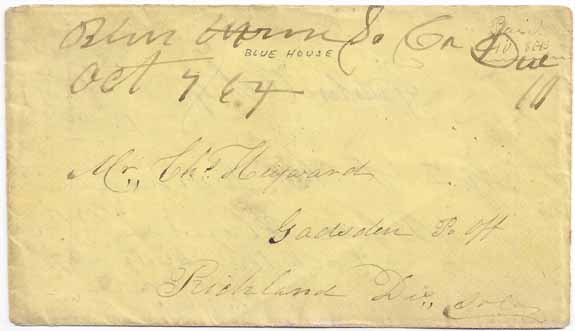 Blue House So Ca Due
BLUE HOUSE
Oct 7 64 10
Paid
10
Mr,, Chs. Heyward
Gadsden P. Off
Richland Dis,,